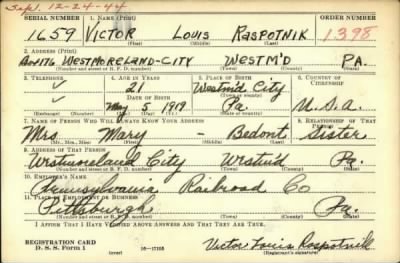 Sepl. 12-24-44
SERIAL NUMBER 1. NAME (Print) ORDER NUMBER
1659 VICTOR LOUIS RASPOTNIK 1398
(First) (Middle) (Last)
2. ADDRESS (Print)
Box 176 WESTMORELAND-CITY WESTM'D PA.
(Number and street or R. F. D. number) (Town) (County) (State)
3. TELEPHONE 4. AGE IN YEARS 5. PLACE OF BIRTH 6. COUNTRY OF CITIZENSHIP
21 Westm'd City
DATE OF BIRTH
May 5 1919 Pa. U.S.A.
(Mo.) (Day) (Yr.) (State or country)
7. NAME OF PERSON WHO WILL ALWAYS KNOW YOUR ADDRESS 8. RELATIONSHIP OF THAT PERSON
Mrs. Mary - Bedont. Sister
(Mr., Mrs., Miss) (First) (Middle) (Last)
9. ADDRESS OF THAT PERSON
Westmoreland City Westm'd Pa.
(Number and street or R. F. D. number) (Town) (County) (State)
10. EMPLOYER'S NAME
Pennsylvania Railroad Co
11. PLACE OF EMPLOYMENT OR BUSINESS
Pittsburgh Pa.
(Number and street or R. F. D. number) (Town) (County) (State)
I AFFIRM THAT I HAVE VERIFIED ABOVE ANSWERS AND THAT THEY ARE TRUE.
REGISTRATION CARD
D. S. S. Form 1 (over) 16—17105 Victor Louis Raspotnik
(Registrant's signature)